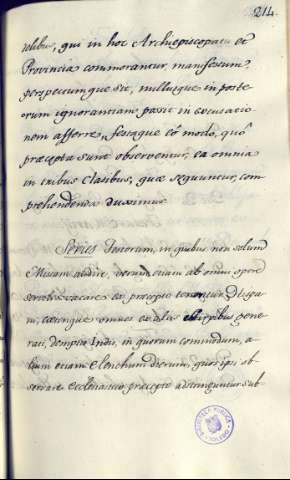 214
delibus, qui in hoc Archiepiscopatu et
Provincia commorantur manifestum,
perspectumque sit, nullusque in poste
orum ignorantiam possit in accusatio
nem afferre, festaque eo modo, quo
præcepta sunt observentur, ea omnia
in tribus Clasibus, quæ sequuntur, com
prehendenda duximus
Series Festorum, in quibus non solum
Missam audire, verum etiam ab omni opere
servili vacare ex precepto tenentur Hispa
ni, cæterique omnes ex aliis stirpibus gene
rati, demptis Indis, in quorum commodum, a
lium etiam Elenchum dierum, quos ipsi ob
servare Ecclesiastico præcepto adstringuntur sub
BIBLIOTECA PUBLICA
TOLEDO